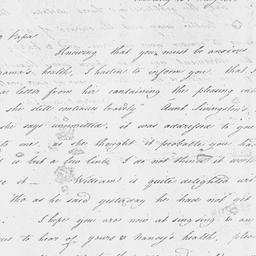 Papa
Knowing that you must be anxious
Mama's health, I hasten to inform you, that
a letter from her containing the pleasing
she still continues steadily Aunt Livingston's
she says unremitted, it was addressed to you
to me, as she thought it probable you ha
it is but a few lines, I do not think it wo
it — William is quite delighted wi
tho as he said yesterday he had not
I hope you are now at singsing & an
to hear of yours & Nancy's health,